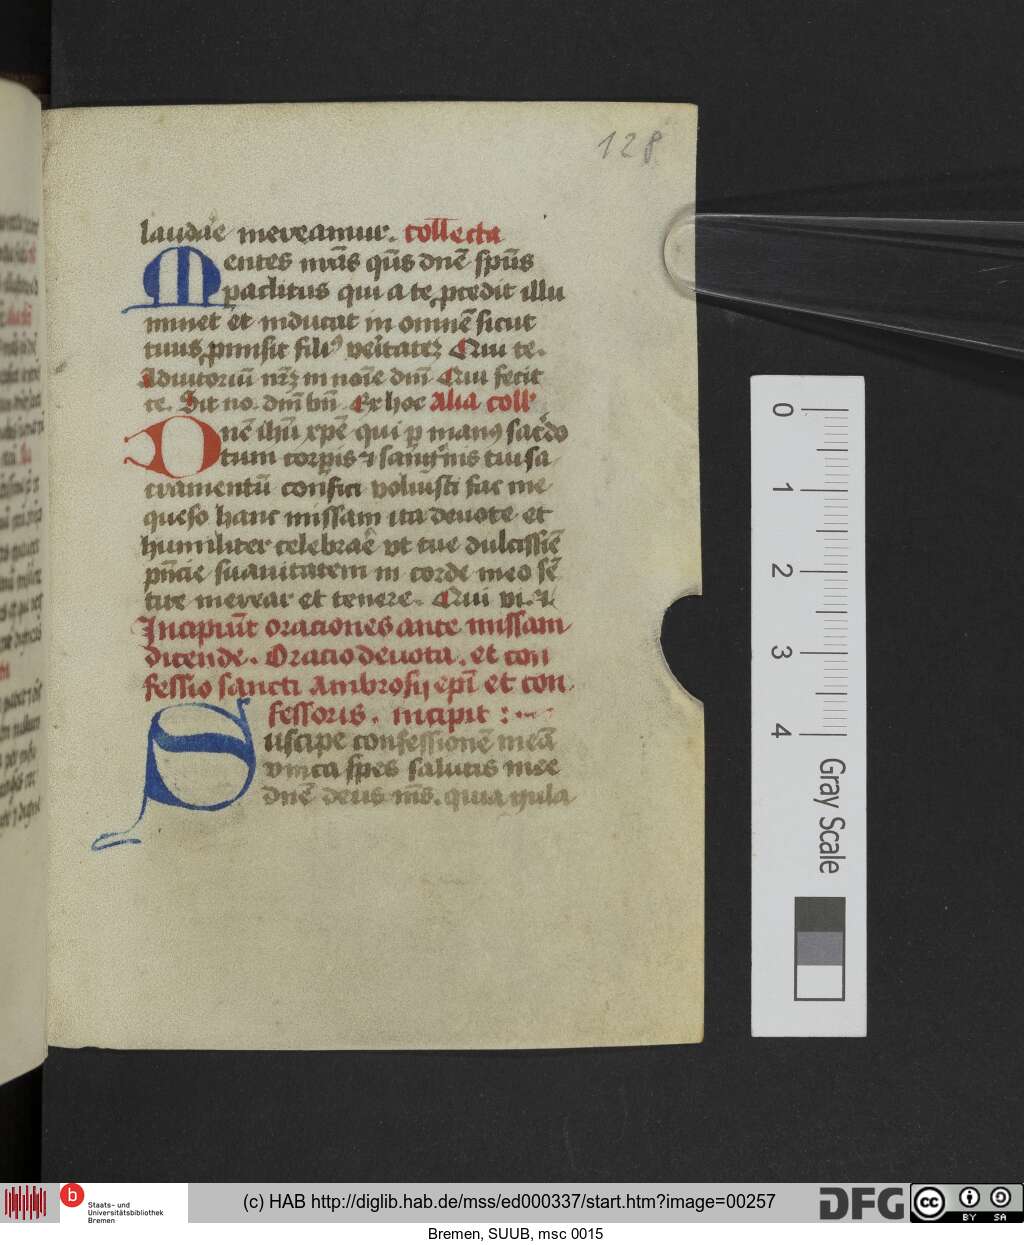 128
laudãe mereamur. collecta
Mentes nr̃as qũs dnẽ sp̃us
paclitus qui a te ꝓcedit illu
minet et inducat in omnẽ sicut
tuus ꝓmisit filiꝰ veritatẽ Qui te.
Adiutoriũ nr̃ꝫ in noĩe dñi Qui fecit
te. Sit no. dñi bñ. Ex hoc Alia coll'
Dnẽ ihũ xp̃e qui ꝑ manꝰ sac̾do
tum corꝑis ⁊ sang̾nis tui sa
cramentũ confici voluisti fac me
queso hanc missam ita deuote et
humiliter celebraẽ vt tue dulcissiẽ
pñcie suauitatem in corde meo sẽ
tire merear et tenere. Qui vi. ⁊
Incipiũt orationes ante missam
dicende. Oracio deuota. et con
fessio sancti Ambrosij epĩ et con
fessoris. incipit :
Suscipe confessionẽ meã
vnica spes salutis mee
dnẽ deus mũs. quia gula
0
1
2
3
4
Gray Scale
b Staats- und
Universitätsbibliothek
Bremen
(c) HAB http://diglib.hab.de/mss/ed000337/start.htm?image=00257
DFG
cc BY SA
Bremen, SUUB, msc 0015